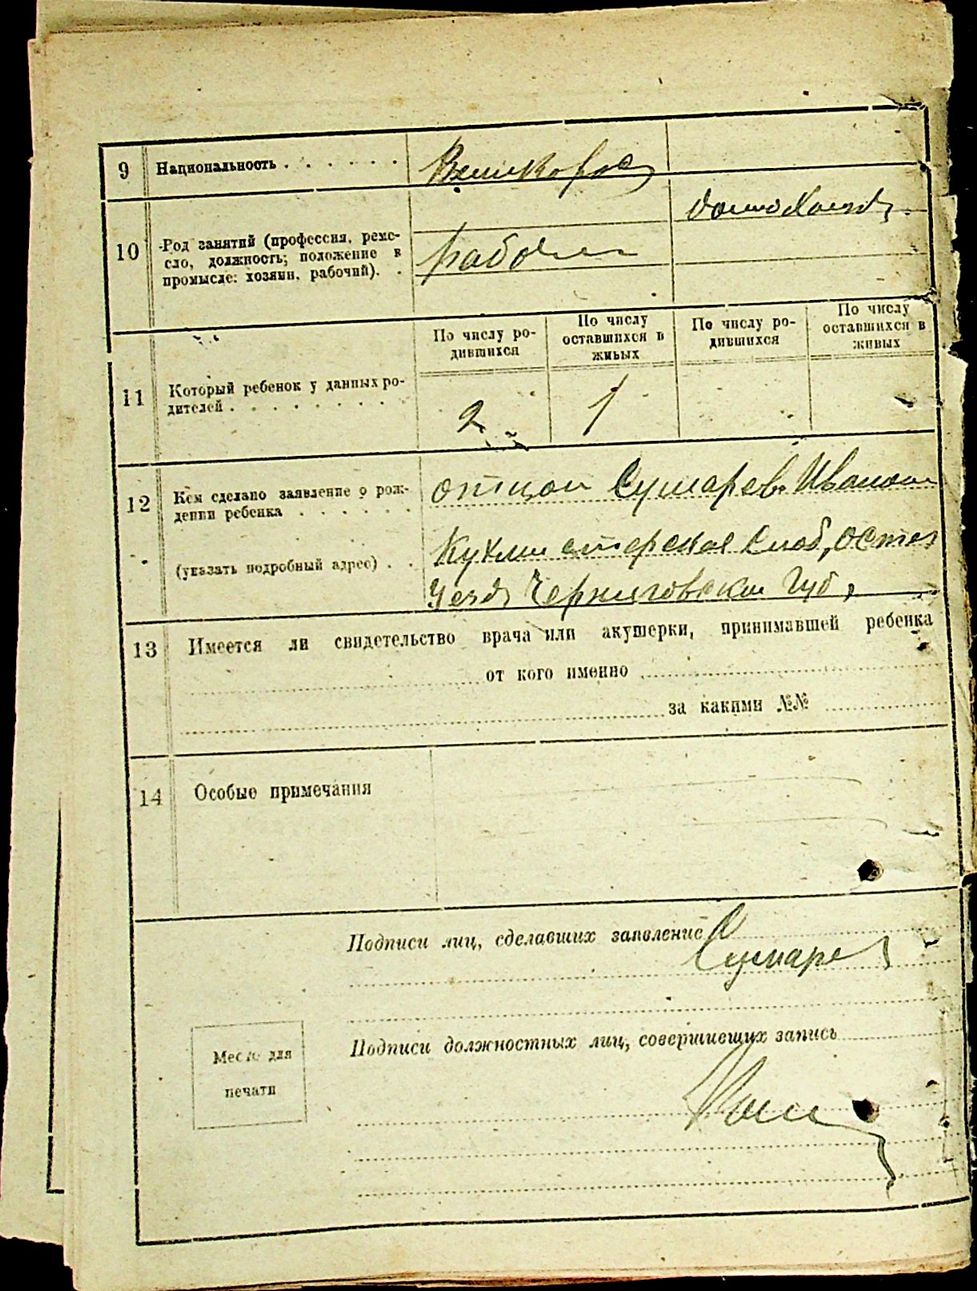 9 Национальность . . . . . . Великорос
10 Род занятий (профессия, реме-
сло, должность; положение в
промысле: хозяин, рабочий). .
домохоз.
рабочий
По числу ро-
дившихся
По числу
оставшихся в
живых
По числу ро-
дившихся
По числу
оставшихся в
живых
11 Который ребенок у данных ро-
дителей . . . . . . . . . 2 1
12 Кем сделано заявление о рож-
дении ребенка . . . . . . .
(указать подробный адрес) . .
отцом Сушарев Иваном
Кухмистерская Слоб, Остер
Уезд Черниговской Губ,
13 Имеется ли свидетельство врача или акушерки, принимавшей ребенка
от кого именно
за какими №№
14 Особые примечания
Подписи лиц, сделавших заявление
Сушарев
Подписи должностных лиц, совершивших запись
Место для
печати